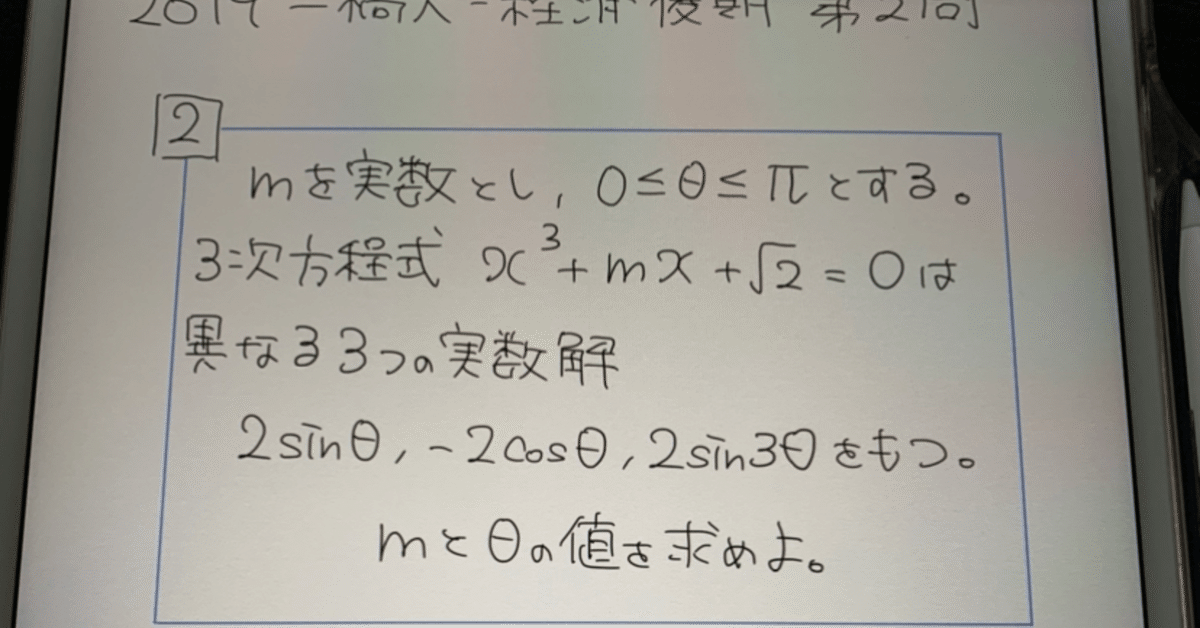 2019 一橋大・経済後期 第2問
2
mを実数とし, 0≤θ≤πとする。
3次方程式 x³+mx+√2=0は
異なる3つの実数解
2sinθ, -2cosθ, 2sin3θをもつ。
mとθの値を求めよ。